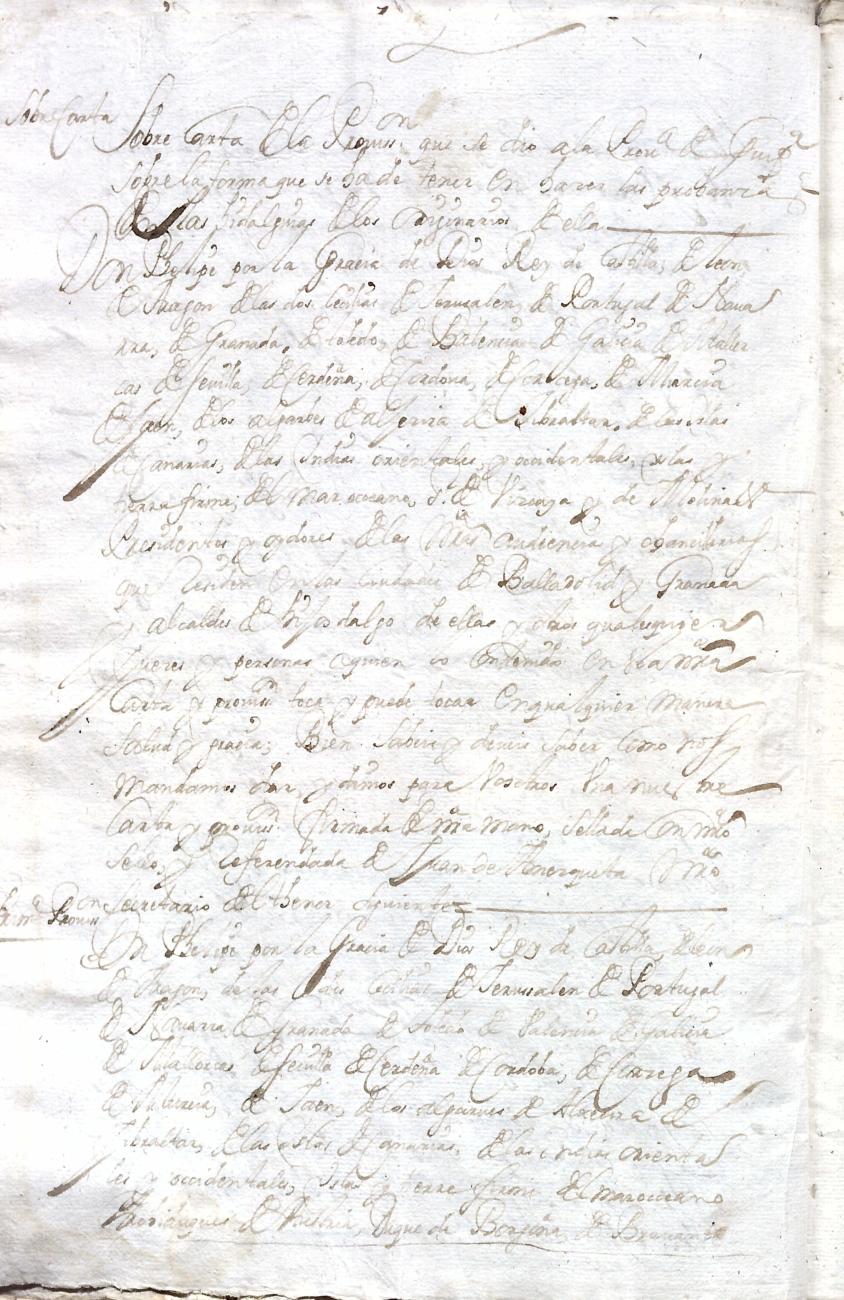 Sobre Carta
Sobre Carta de la Prouis.on que se dio a la Prou.a de Guip.a
sobre la forma que se ha de tener en hacer las probanzas
de las hidalguias de los originarios de ella
Don Phelipe por la Gracia de Dios Rey de Castilla, de Leon,
de Aragon, de las dos Cecilias de Jerusalen, de Portugal de Naua
rra, de Granada, de toledo, de Balencia de Galicia de Mallor
cas de Seuilla, de Cerdeña, de Cordoua, de Corcega, de Murcia
de Jaen, de los algarbes de algecira de Gibraltar, de las islas
de Canarias, de las Indias orientales, y occidentales, yslas y
tierra firme, del mar occeano, s.r de Vizcaya y de Molina &
Presidentes y oydores de las nras audiencias y chancillerias
que residen en las ciudades de Balladolid y Granada
y alcaldes de hijosdalgo de ellas y otros qualesquier
Jueces y personas a quien lo contenido en esta nra
Carta y prouis.on toca y puede tocar en qualquier manera
salud y gracia; Bien sabeis y deuis saber como nos
mandamos dar, y dimos para Vosotros Una nuestra
Carta y prouis.on firmada de mi mano, sellada con nro
sello, y Referendada de Juan de Amezqueta nro
Secretario del thenor siguiente
Prim.a Prouis.on
Don Phelipe por la Gracia de Dios Rey de Castilla, de Leon
de Aragon, de las dos Cecilias de Jerusalen de Portugal
de Nauarra de Granada de Toledo de Valencia de Galicia
de Mallorcas de Seuilla de Cerdeña de Cordoba, de Corcega
de Murcia, de Jaen, de los algarues de Algecira de
Gibraltar, de las islas de Canarias, de las indias orienta
les y occidentales, Islas y tierra firme del mar occeano
Archiduque de Austria, Duque de Borgoña, de Brauante